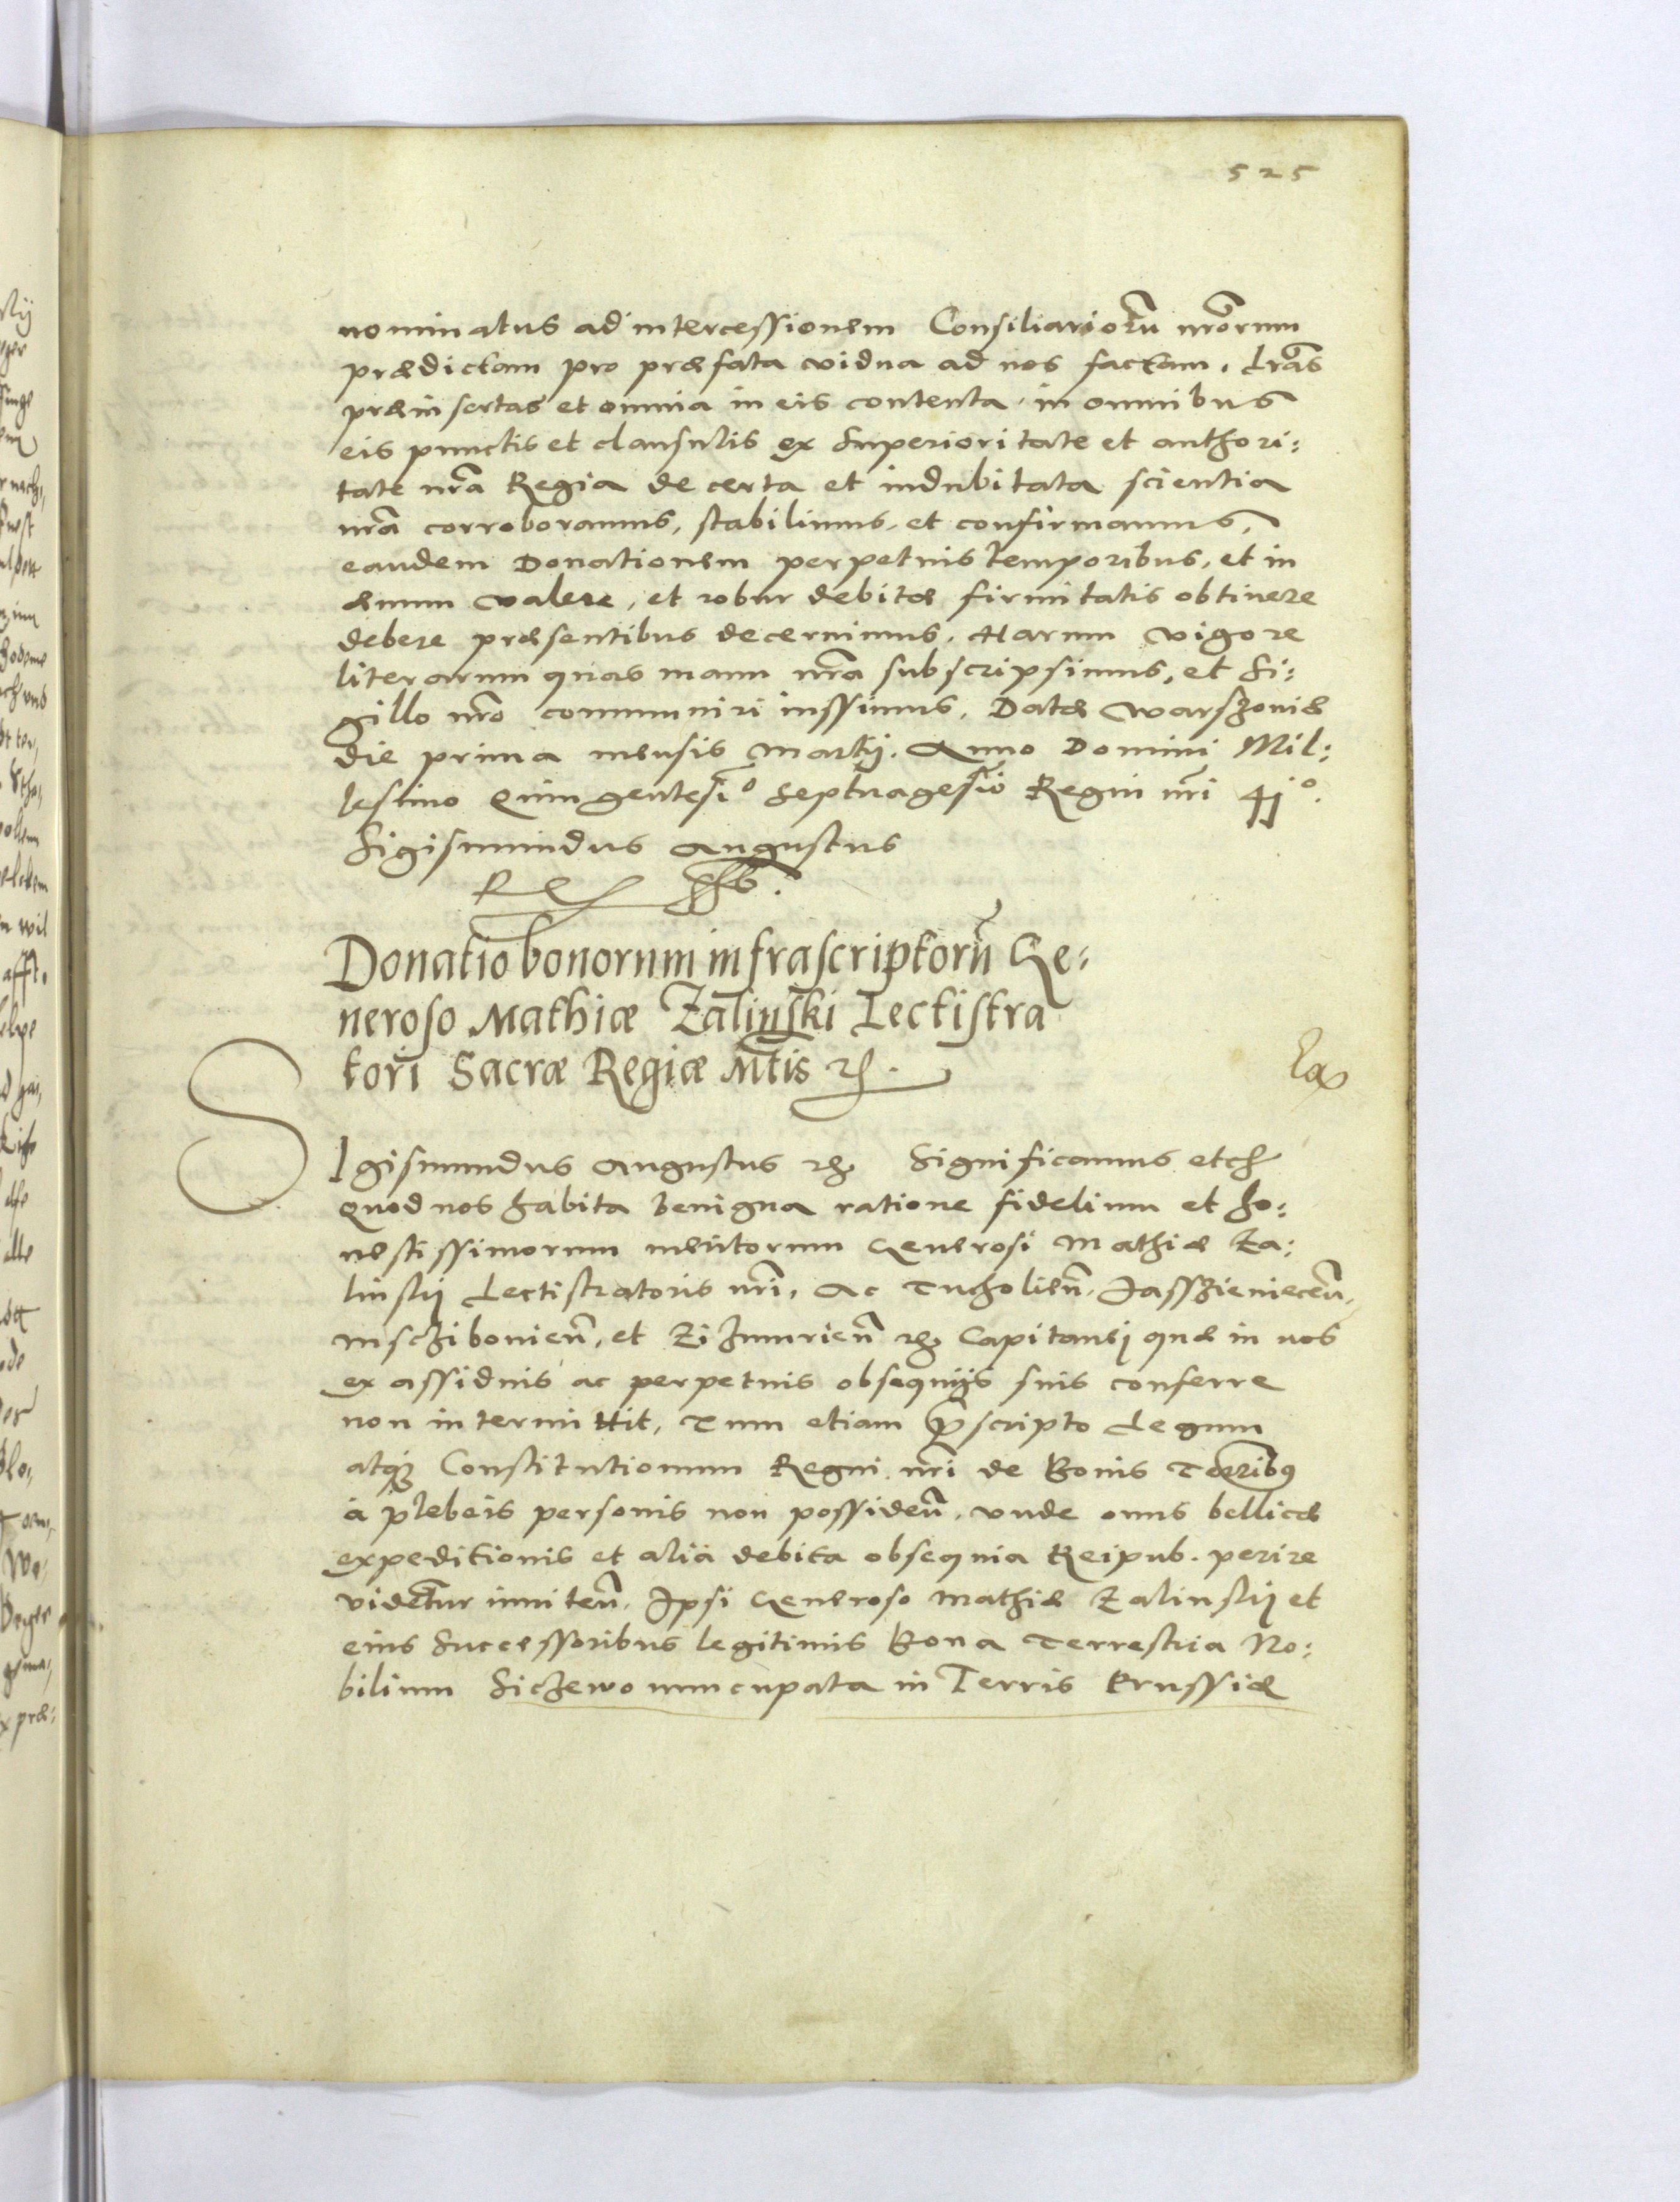 525
nominatus ad intercessionem Consiliariorũ nrõrum
prædictam pro præfata vidua ad nos factam. Lrãs
præinsertas et omnia in eis contenta, in omnibus
eis punctis et clausulis ex Superioritate et authori:
tate nrã Regia de certa et indubitata scientia
nrã corroboramus, stabilimus, et confirmamus,
eandem Donationem perpetuis temporibus, et in
æuum valere, et robur debitæ firmitatis obtinere
debere præsentibus decernimus. Harum vigore
literarum quas manu nrã subscripsimus, et Si:
gillo nrõ communiri iussimus. Datæ Warszoviæ
die prima mensis Martij. Anno Domini Mil:
lesimo Quingentesiº Septuagesiõ Regni nrĩ 41º.
Sigismundus Augustus
Rex sst.
Donatio bonorum infrascriptorũ Ge:
neroso Mathiæ Zalinski Lectistra
tori Sacræ Regiæ Mtis etc.
Ex
SIgismundus Augustus etc. Significamus etc
Quod nos habita benigna ratione fidelium et ho:
nestissimorum meritorum Generosi Mathiæ Za:
linskij Lectistratoris nrĩ, Ac Tucholieñ, Jasszienieceñ,
Mschibonieñ, et Zizmurieñ etc. Capitanej quæ in nos
ex assiduis ac perpetuis obsequijs suis conferre
non intermittit, Tum etiam p̃scripto Legum
atq̃ Constitutionum Regni nrĩ de Bonis Terrib9
à plebeis personis non possideñ, vnde onus bellicæ
expeditionis et alia debita obsequia Reipub. perire
videntur inniteñ, Ipsi Generoso Mathiæ Zalinskij et
eius Successoribus legitimis Bona Terrestria No:
bilium Sichewo nuncupata in Terris Prussiæ